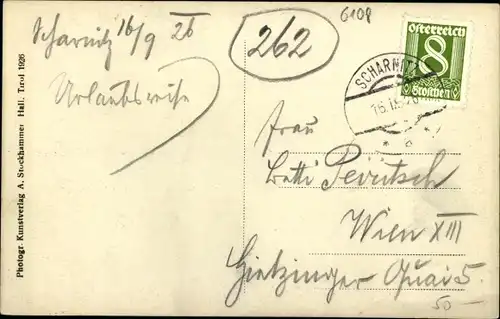 Scharnitz 16/9 26
Urlaubsreise
262
6108
Österreich
8
Groschen
SCHARNITZ
Frau
Betti Peritsch
Wien XIII
Hietzinger Quai 5.
50 —
Photogr. Kunstverlag A. Stockhammer Hall, Tirol 1926